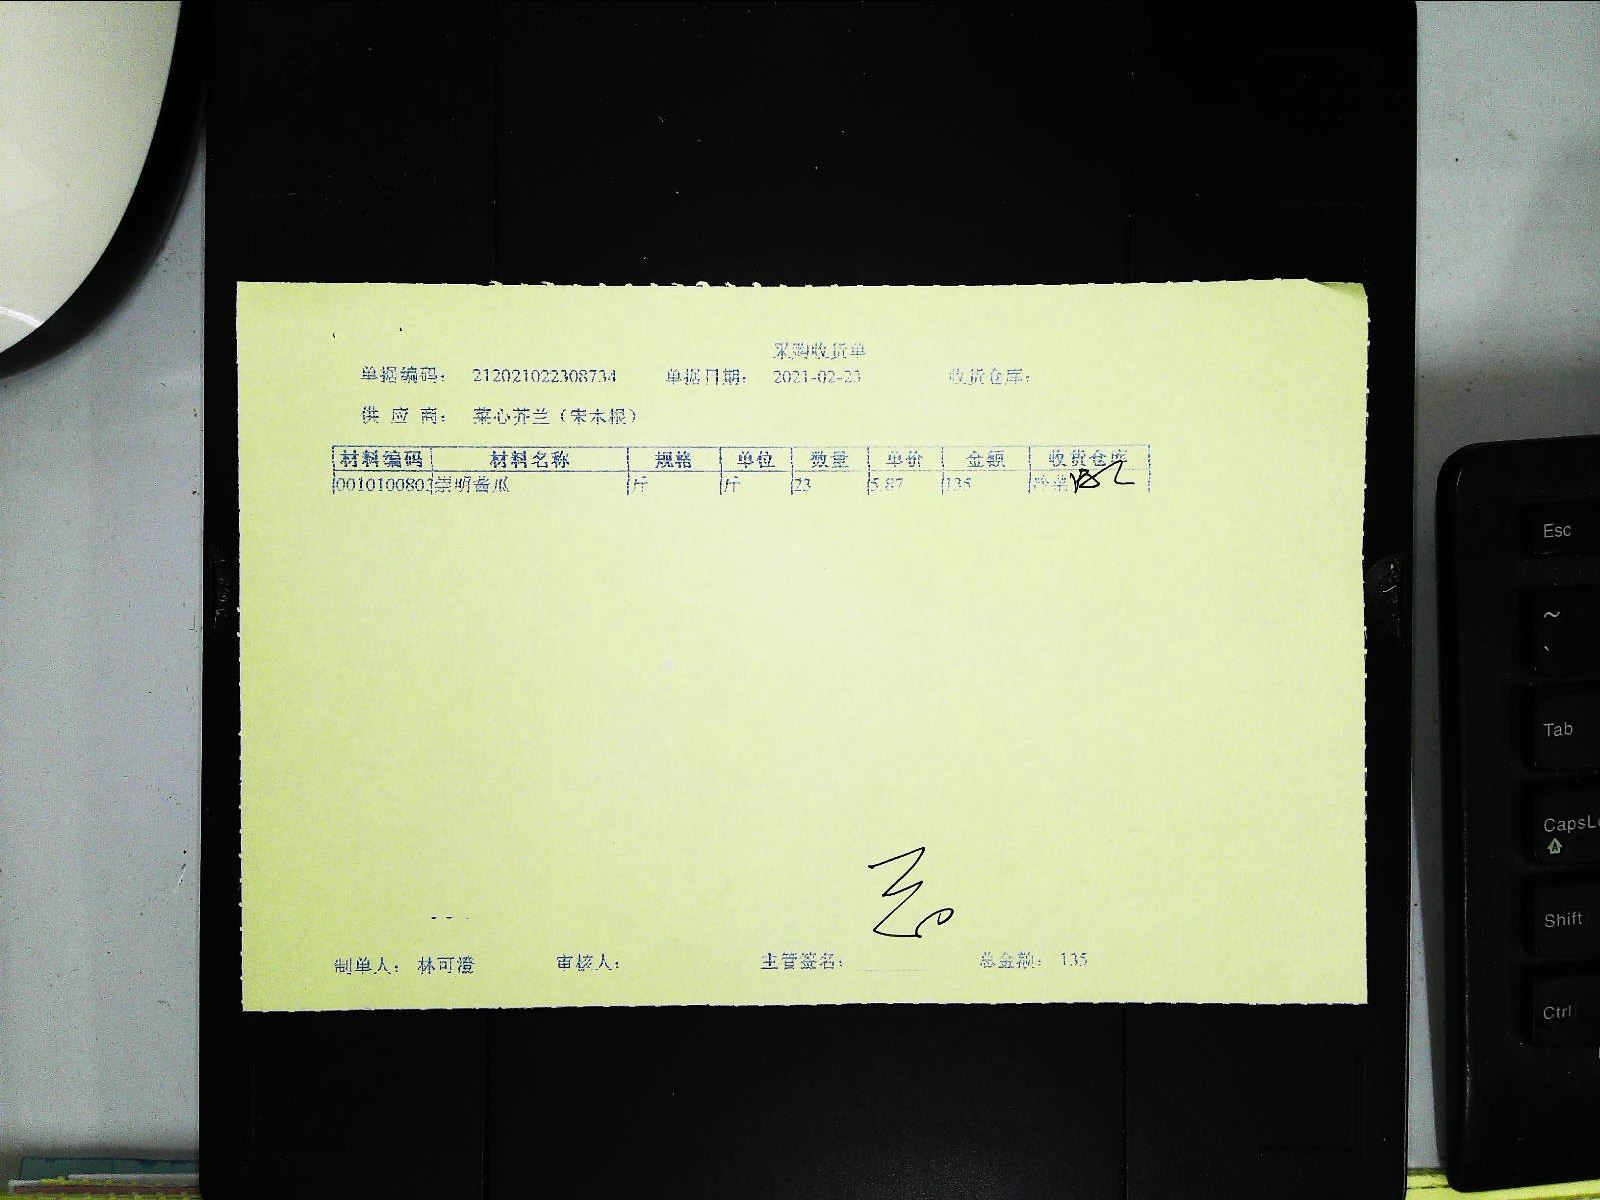 采购收货单
单据编码： 212021022308734 单据日期： 2021-02-23 收货仓库：
供 应 商： 菜心芥兰（宋木根）
材料编码 材料名称 规格 单位 数量 单价 金额 收货仓库
0010100802 崇明酱瓜 斤 斤 23 5.87 135 冷菜
制单人： 林可澄 审核人： 主管签名： 总金额： 135
Esc
~
Tab
CapsLo
Shift
Ctrl